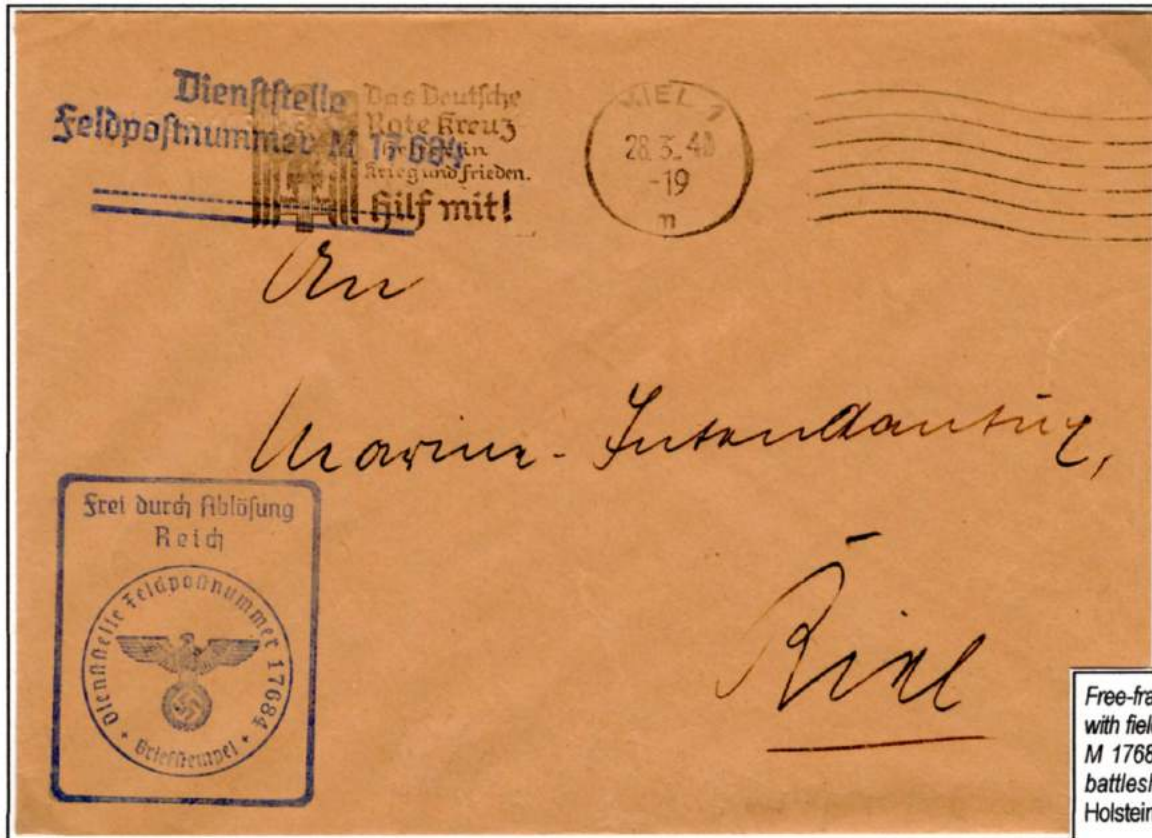 Dienststelle
Feldpostnummer M 17684
Das Deutsche
Rote Kreuz
in
Krieg und Frieden.
Hilf mit!
KIEL 1
28.3.40
-19
m
An
Marine-Intendantur,
Kiel
Frei durch Ablösung
Reich
Dienststelle Feldpostnummer 17684
Briefstempel
Free-fra
with fiel
M 1768
battlesh
Holstein